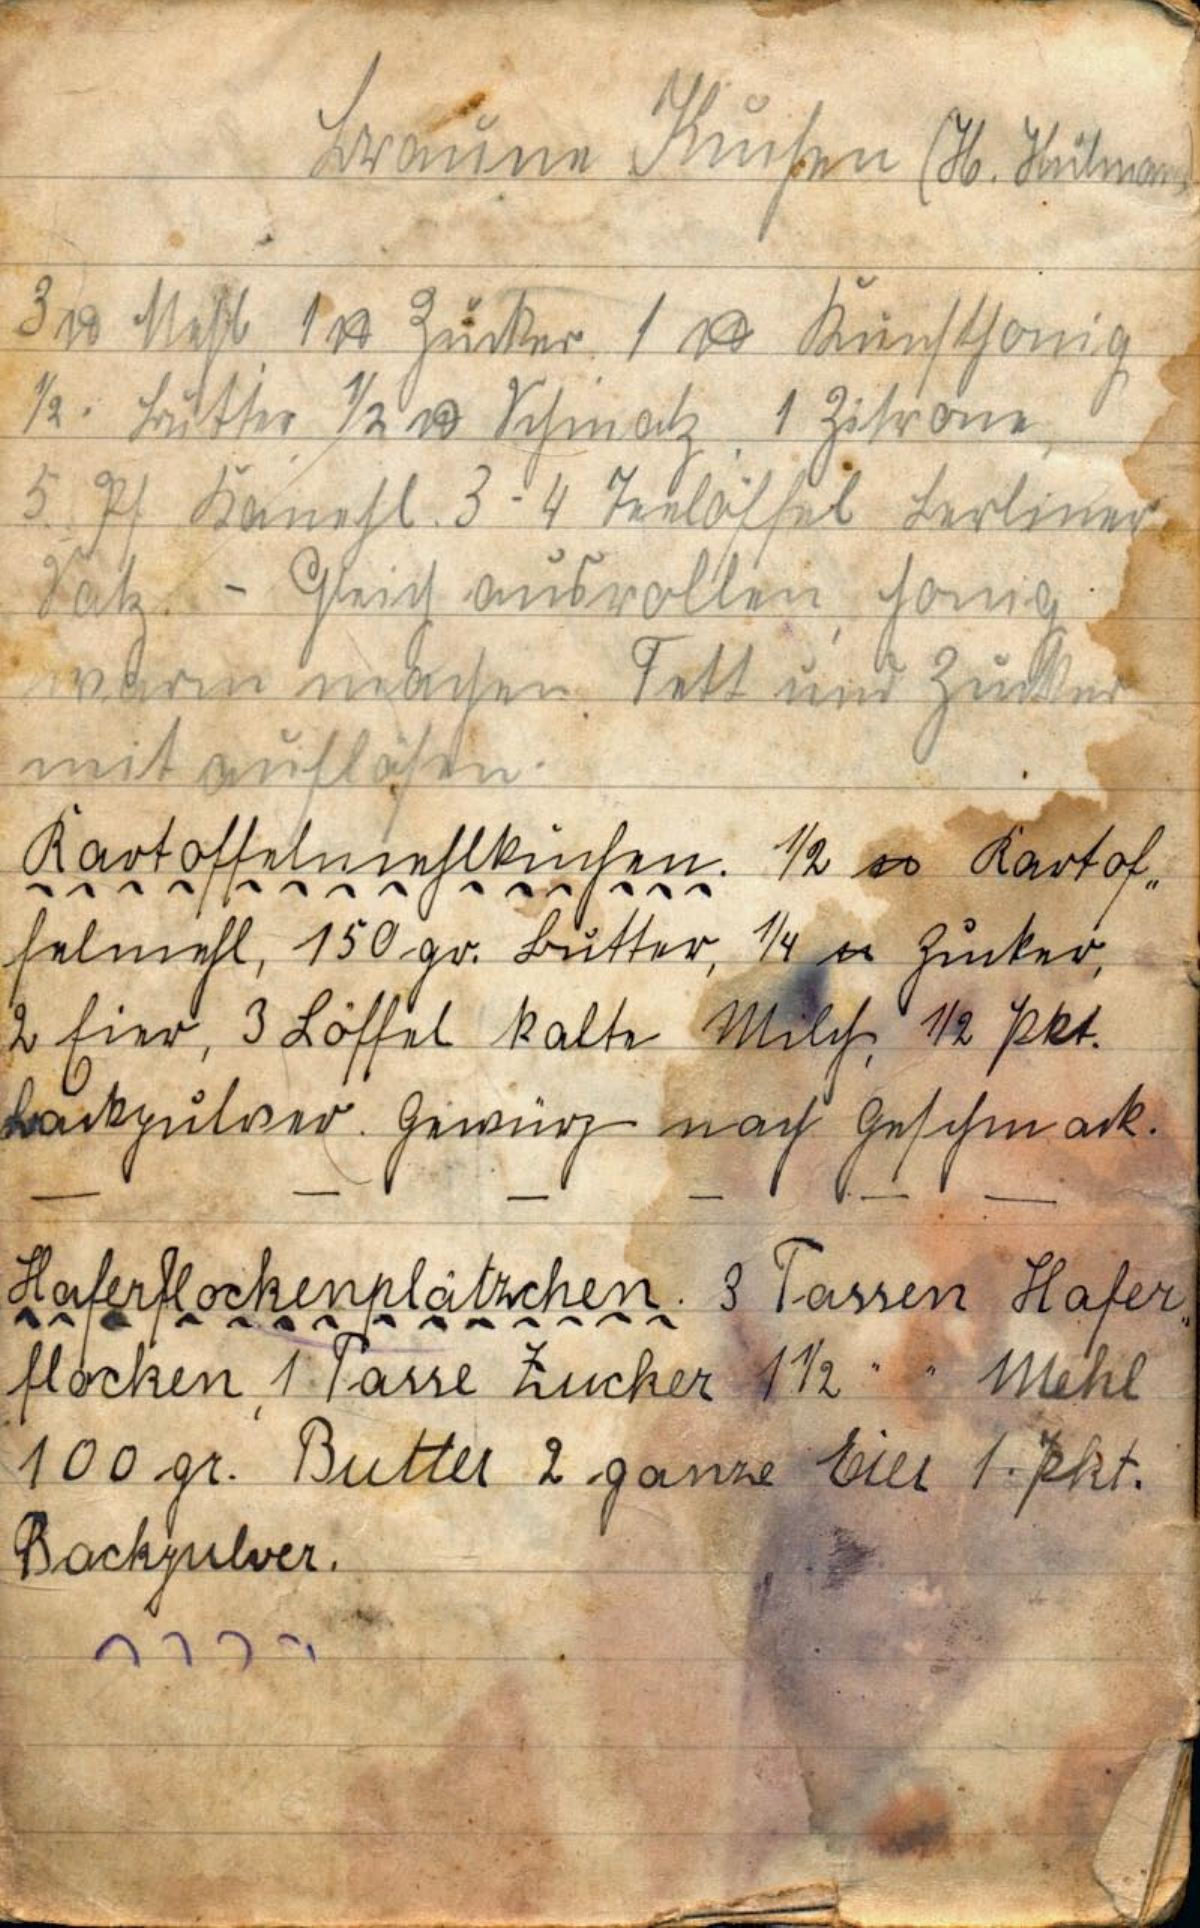 Braune Kuchen (H. Heilmann
3 ℔ Mehl 1 ℔ Zucker 1 ℔ Kunsthonig
1/2. Butter 1/2 ℔ Schmalz, 1 Zitrone,
5 Pf Kanehl. 3-4 Teelöffel Berliner
Salz. - Gleich ausrollen, Honig
warm machen. Fett und Zucker
mit auflösen.
Kartoffelmehlkuchen. 1/2 ℔ Kartof„
felmehl, 150 gr. Butter, 1/4 ℔ Zucker,
2 Eier, 3 Löffel kalte Milch, 1/2 Pkt.
Backpulver. Gewürz nach Geschmack.
Haferflockenplätzchen. 3 Tassen Hafer„
flocken, 1 Tasse Zucker 1 1/2 " " Mehl
100 gr. Butter 2 ganze Eier 1. Pkt.
Backpulver.